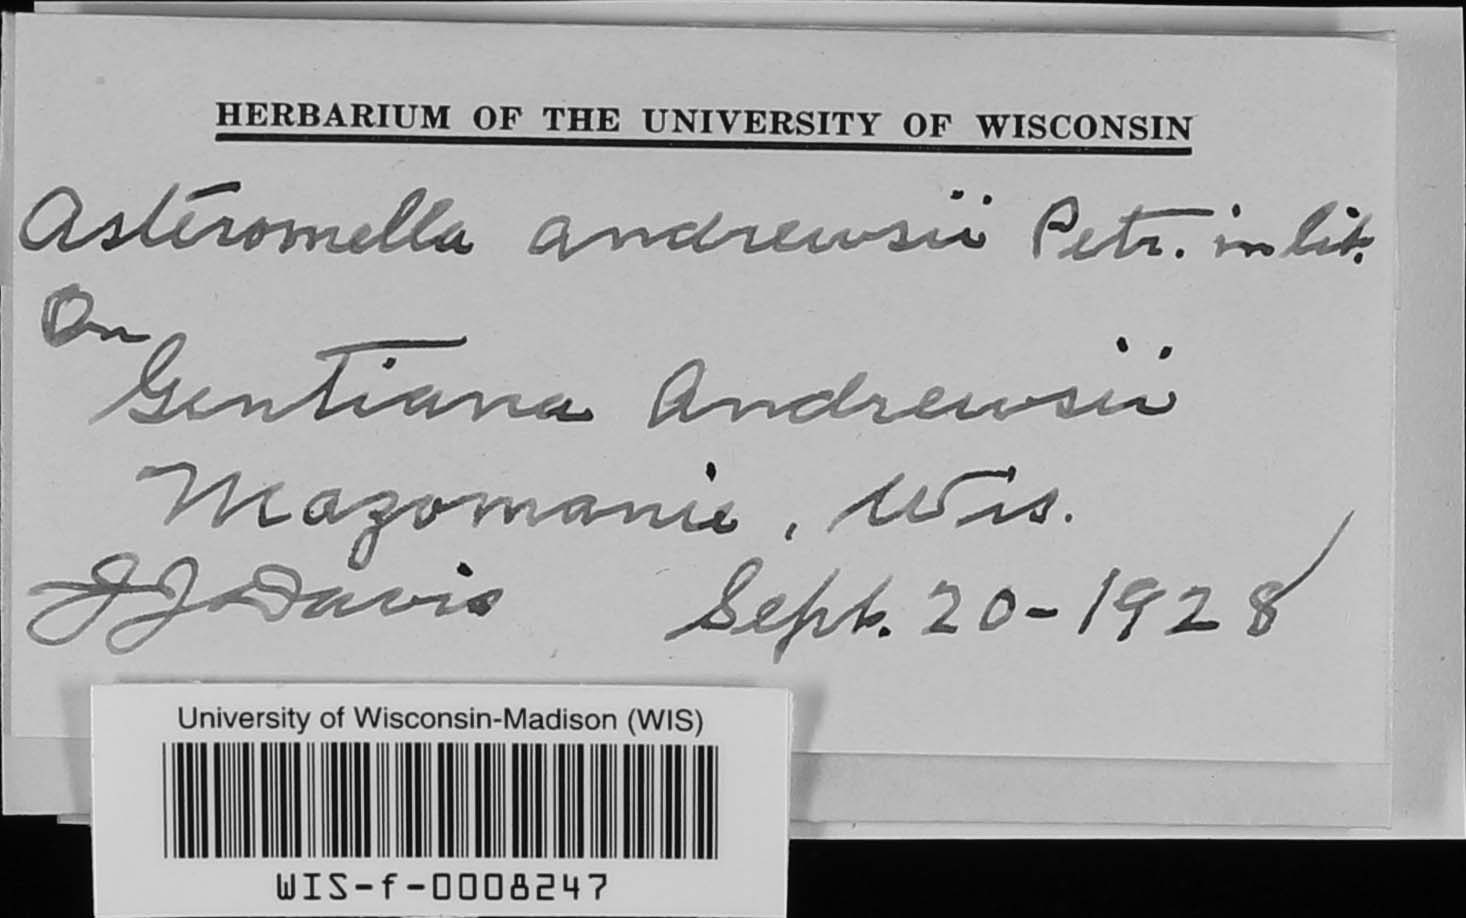 HERBARIUM OF THE UNIVERSITY OF WISCONSIN
Asteromella andrewsii Petr. in lit.
On
Gentiana Andrewsii
Mazomanie, Wis.
J J Davis Sept. 20-1928
University of Wisconsin-Madison (WIS)
WIS-f-0008247